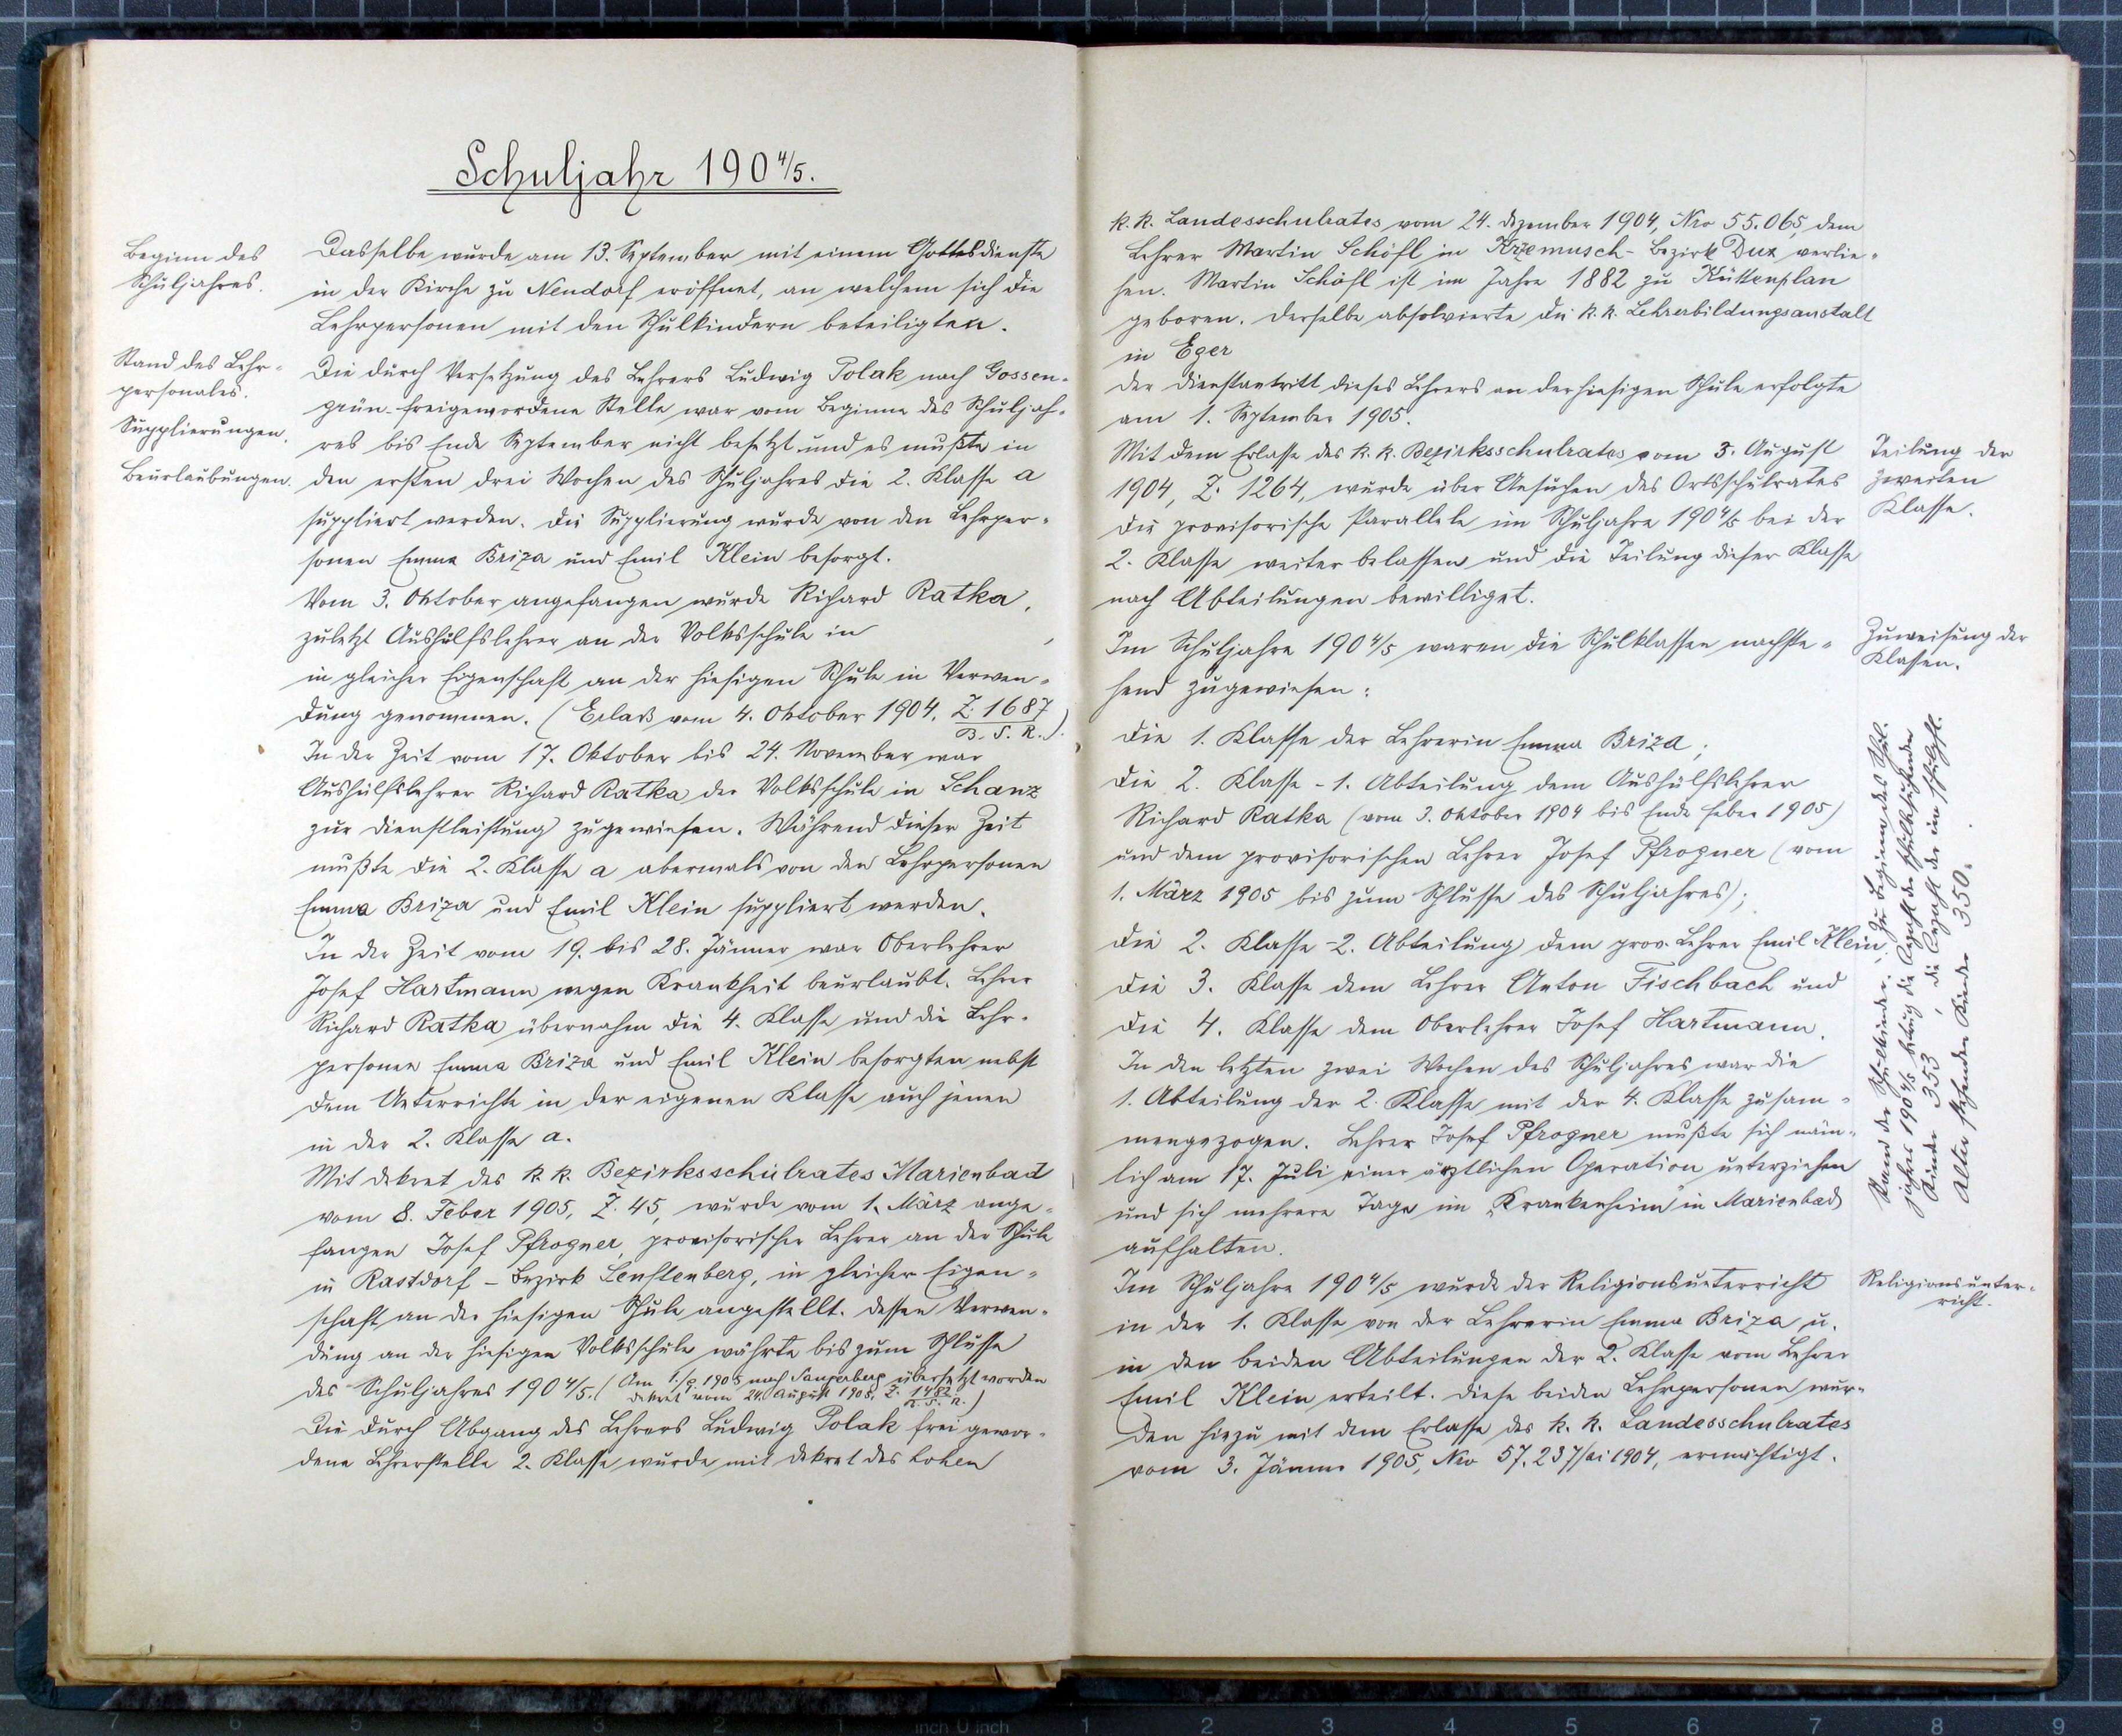 Schuljahr 1904/5.
Beginn des
Schuljahres.
Dasselbe wurde am 13. September mit einem Gottesdienste
in der Kirche zu Neudorf eröffnet, an welchem sich die
Lehrpersonen mit den Schulkindern beteiligten.
Stand des Lehr-
personales.
Supplierungen.
Beurlaubungen.
Die durch Versetzung des Lehrers Ludwig Polak nach Gossen-
grün freigewordene Stelle war vom Beginne des Schuljah-
res bis Ende September nicht besetzt und es mußte in
den ersten drei Wochen des Schuljahres die 2. Klasse a
suppliert werden. Die Supplierung wurde von den Lehrper-
sonen Emma Briza und Emil Klein besorgt.
Vom 3. Oktober angefangen wurde Richard Ratka,
zuletzt Aushülfslehrer an der Volksschule in ,
in gleicher Eigenschaft an der hiesigen Schule in Verwen-
dung genommen. (Erlaß vom 4. Oktober 1904, Z. 1687
B. S. R.).
In der Zeit vom 17. Oktober bis 24. November war
Aushülfslehrer Richard Ratka der Volksschule in Schanz
zur Dienstleistung zugewiesen. Während dieser Zeit
mußte die 2. Klasse a abermals von den Lehrpersonen
Emma Briza und Emil Klein suppliert werden.
In der Zeit vom 19. bis 28. Jänner war Oberlehrer
Josef Hartmann wegen Krankheit beurlaubt. Lehrer
Richard Ratka übernahm die 4. Klasse und die Lehr-
personen Emma Briza und Emil Klein besorgten nebst
dem Unterrichte in der eigenen Klasse auch jenen
in der 2. Klasse a.
Mit Dekret des k. k. Bezirksschulrates Marienbad
vom 8. Feber 1905, Z. 45, wurde vom 1. März ange-
fangen Josef Pfrogner, provisorischer Lehrer an der Schule
in Rastdorf - Bezirk Senftenberg, in gleicher Eigen-
schaft an der hiesigen Schule angestellt. Dessen Verwen-
dung an der hiesigen Volksschule währte bis zum Schlusse
des Schuljahres 1904/5. (Am 1./9. 1905 nach Sangerberg übersetzt worden
Dekret vom 24. August 1905, Z. 1482
B. S. R.)
Die durch Abgang des Lehrers Ludwig Polak frei gewor-
dene Lehrerstelle 2. Klasse wurde mit Dekret des hohen
k. k. Landesschulrates vom 24. Dezember 1904, Nro 55.065, dem
Lehrer Martin Schöfl in Krzemusch - Bezirk Dux verlie-
hen. Martin Schöfl ist im Jahre 1882 zu Kuttenplan
geboren. Derselbe absolvierte die k. k. Lehrerbildungsanstalt
in Eger
Der Dienstantritt dieses Lehrers an der hiesigen Schule erfolgte
am 1. September 1905.
Mit dem Erlasse des k. k. Bezirksschulrates vom 3. August
1904, Z. 1264, wurde über Ansuchen des Ortsschulrates
die provisorische Parallele im Schuljahre 1904/5 bei der
2. Klasse weiter belassen und die Teilung dieser Klasse
nach Abteilungen bewilliget.
Teilung der
zweiten
Klasse.
Im Schuljahre 1904/5 waren die Schulklassen nachste-
hend zugewiesen:
Zuweisung der
Klassen.
Die 1. Klasse der Lehrerin Emma Briza;
die 2. Klasse - 1. Abteilung dem Aushülfslehrer
Richard Ratka (vom 3. Oktober 1904 bis Ende Feber 1905)
und dem provisorischen Lehrer Josef Pfrogner (vom
1. März 1905 bis zum Schlusse des Schuljahres);
die 2. Klasse - 2. Abteilung dem prov. Lehrer Emil Klein;
die 3. Klasse dem Lehrer Anton Fischbach und
die 4. Klasse dem Oberlehrer Josef Hartmann.
In den letzten zwei Wochen des Schuljahres war die
1. Abteilung der 2. Klasse mit der 4. Klasse zusam-
mengezogen. Lehrer Josef Pfrogner mußte sich näm-
lich am 17. Juli einer ärztlichen Operation unterziehen
und sich mehrere Tage im "Krankenheim" in Marienbad
aufhalten.
Stand der Schulkinder. Zu Beginn des Schul-
jahres 1904/5 betrug die Anzahl der schulbesuchenden
Kinder 353, die Anzahl der im schulpfl.
Alter stehenden Kinder 350.
Im Schuljahre 1904/5 wurde der Religionsunterricht
in der 1. Klasse von der Lehrerin Emma Briza u.
in den beiden Abteilungen der 2. Klasse vom Lehrer
Emil Klein erteilt. Diese beiden Lehrpersonen wur-
den hiezu mit dem Erlasse des k. k. Landesschulrates
vom 3. Jänner 1905, Nro 57.237/ai 1904, ermächtigt.
Religionsunter-
richt.